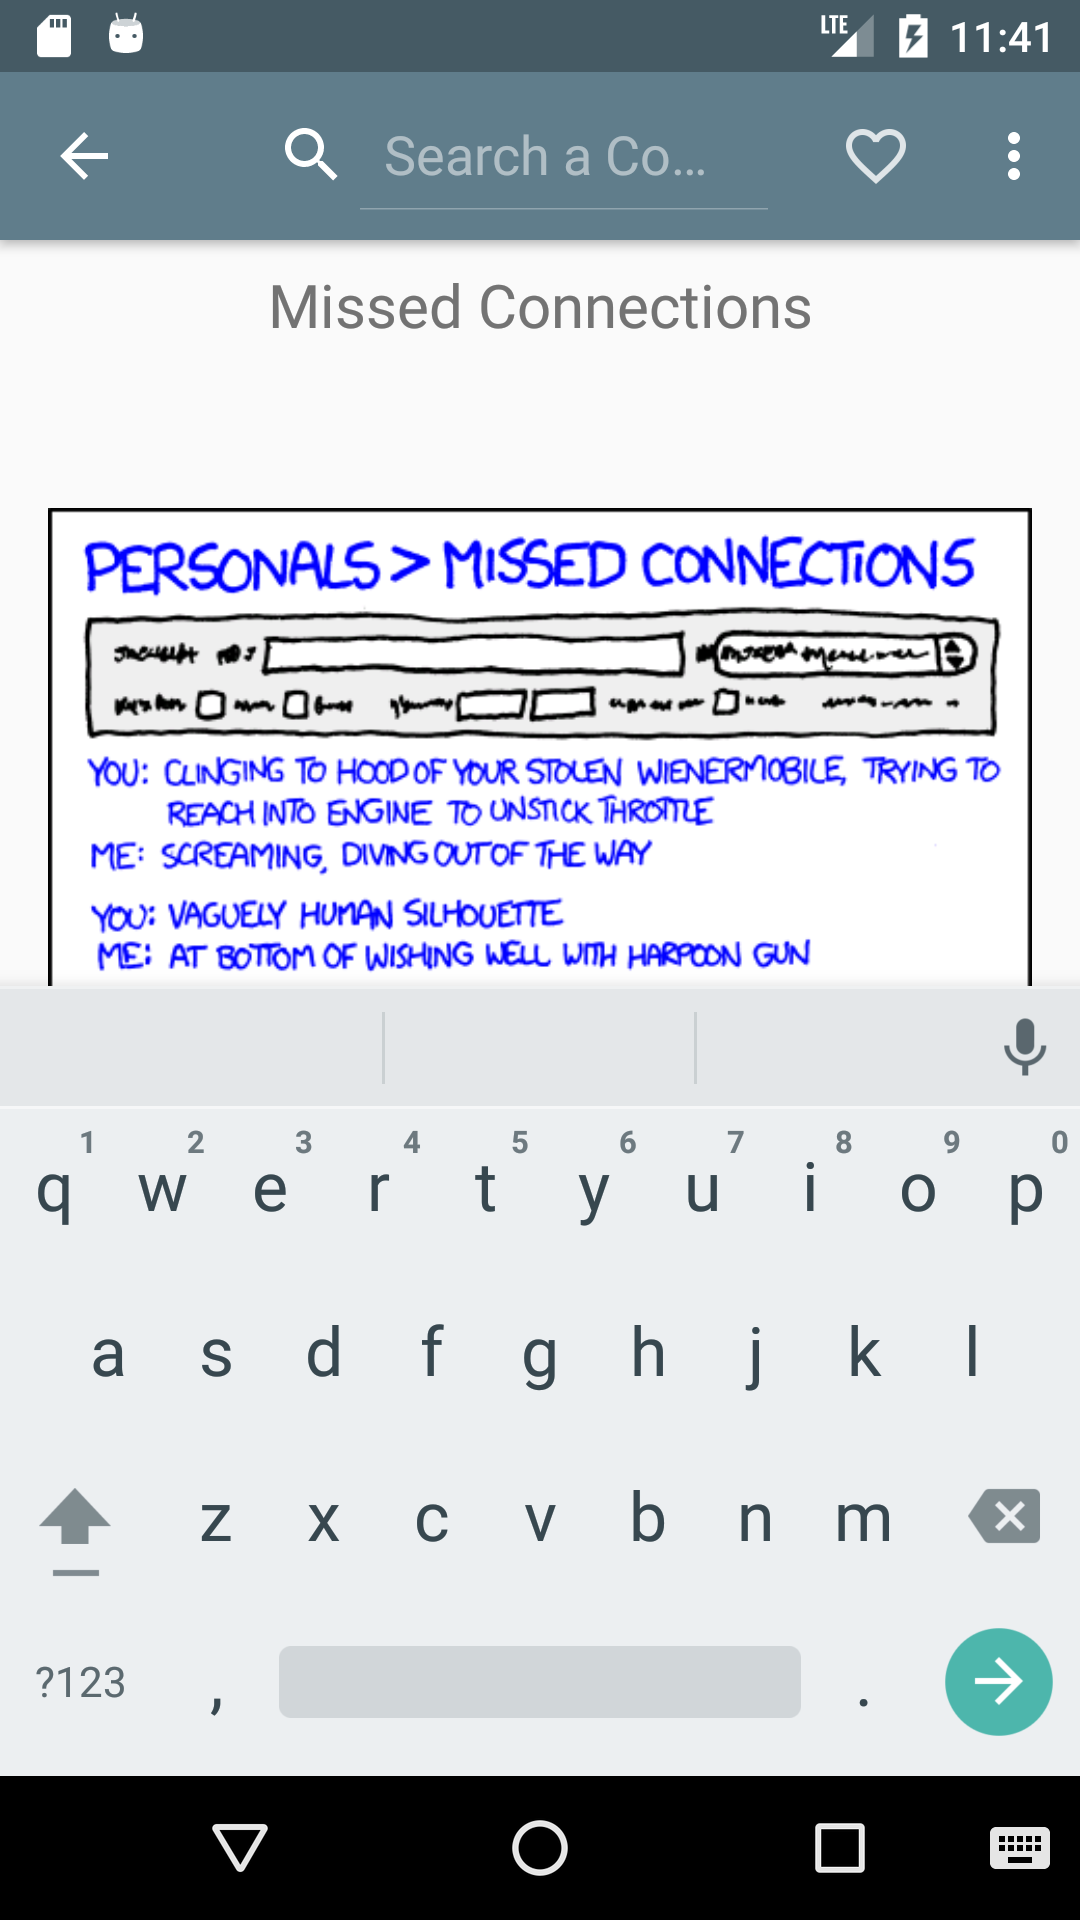 LTE 11:41
Search a Co...
Missed Connections
PERSONALS > MISSED CONNECTIONS
YOU: CLINGING TO HOOD OF YOUR STOLEN WIENERMOBILE, TRYING TO
REACH INTO ENGINE TO UNSTICK THROTTLE
ME: SCREAMING, DIVING OUT OF THE WAY
YOU: VAGUELY HUMAN SILHOUETTE
ME: AT BOTTOM OF WISHING WELL WITH HARPOON GUN
1 2 3 4 5 6 7 8 9 0
q w e r t y u i o p
a s d f g h j k l
z x c v b n m
?123 , .